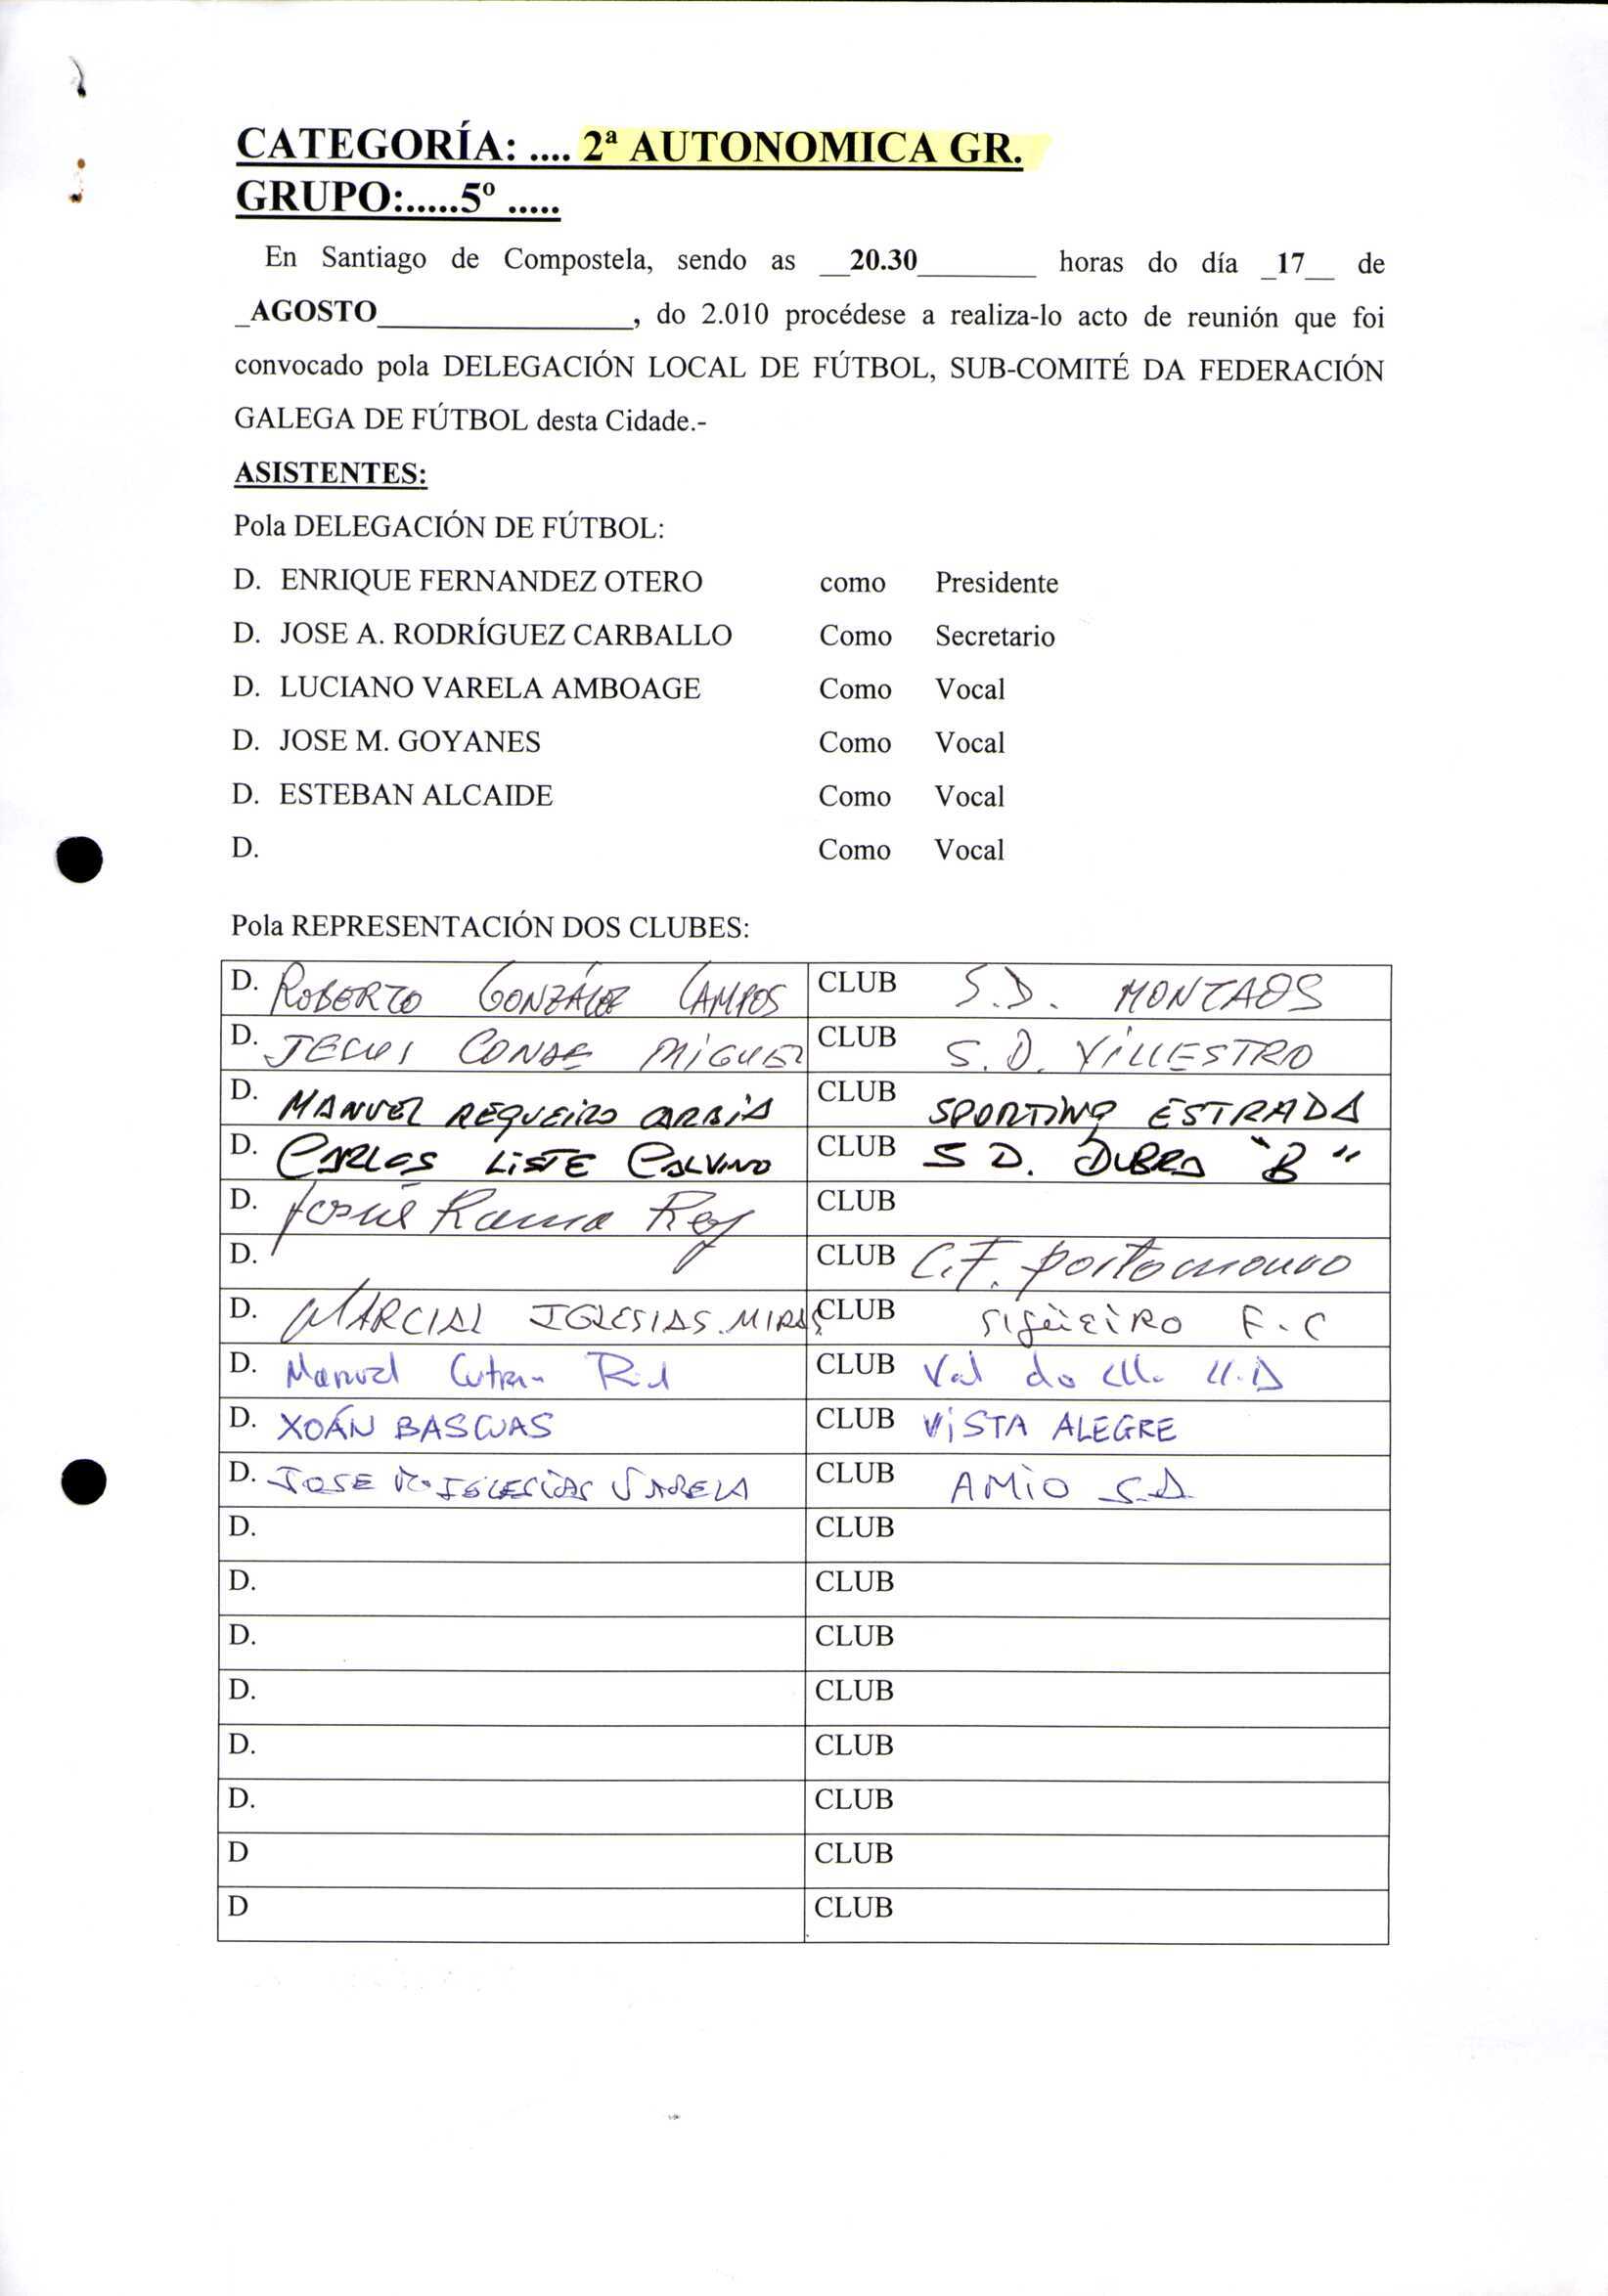 CATEGORÍA: .... 2ª AUTONOMICA GR.
GRUPO:.....5º .....
En Santiago de Compostela, sendo as __20.30________ horas do día _17__ de
_AGOSTO_________________, do 2.010 procédese a realiza-lo acto de reunión que foi
convocado pola DELEGACIÓN LOCAL DE FÚTBOL, SUB-COMITÉ DA FEDERACIÓN
GALEGA DE FÚTBOL desta Cidade.-
ASISTENTES:
Pola DELEGACIÓN DE FÚTBOL:
D. ENRIQUE FERNANDEZ OTERO como Presidente
D. JOSE A. RODRÍGUEZ CARBALLO Como Secretario
D. LUCIANO VARELA AMBOAGE Como Vocal
D. JOSE M. GOYANES Como Vocal
D. ESTEBAN ALCAIDE Como Vocal
D. Como Vocal
Pola REPRESENTACIÓN DOS CLUBES:
D. ROBERTO GONZÁLEZ CAMPOS CLUB S.D. MONTAOS
D. CONDE MIGUEZ CLUB S.D. VILLESTRO
D. MANUEL REQUEIRO CLUB SPORTING ESTRADA
D. CARLOS LISTE CALVIÑO CLUB S D. DUBRA "B"
D. José Rama Rey CLUB
D. CLUB C.F. portomouro
D. MARCIAL IGLESIAS MIRAS CLUB SIGÜEIRO F.C
D. Manuel CLUB Val do
D. XOÁN BASCUAS CLUB VISTA ALEGRE
D. JOSE Mª IGLESIAS VARELA CLUB AMIO S.D.
D. CLUB
D. CLUB
D. CLUB
D. CLUB
D. CLUB
D. CLUB
D CLUB
D CLUB